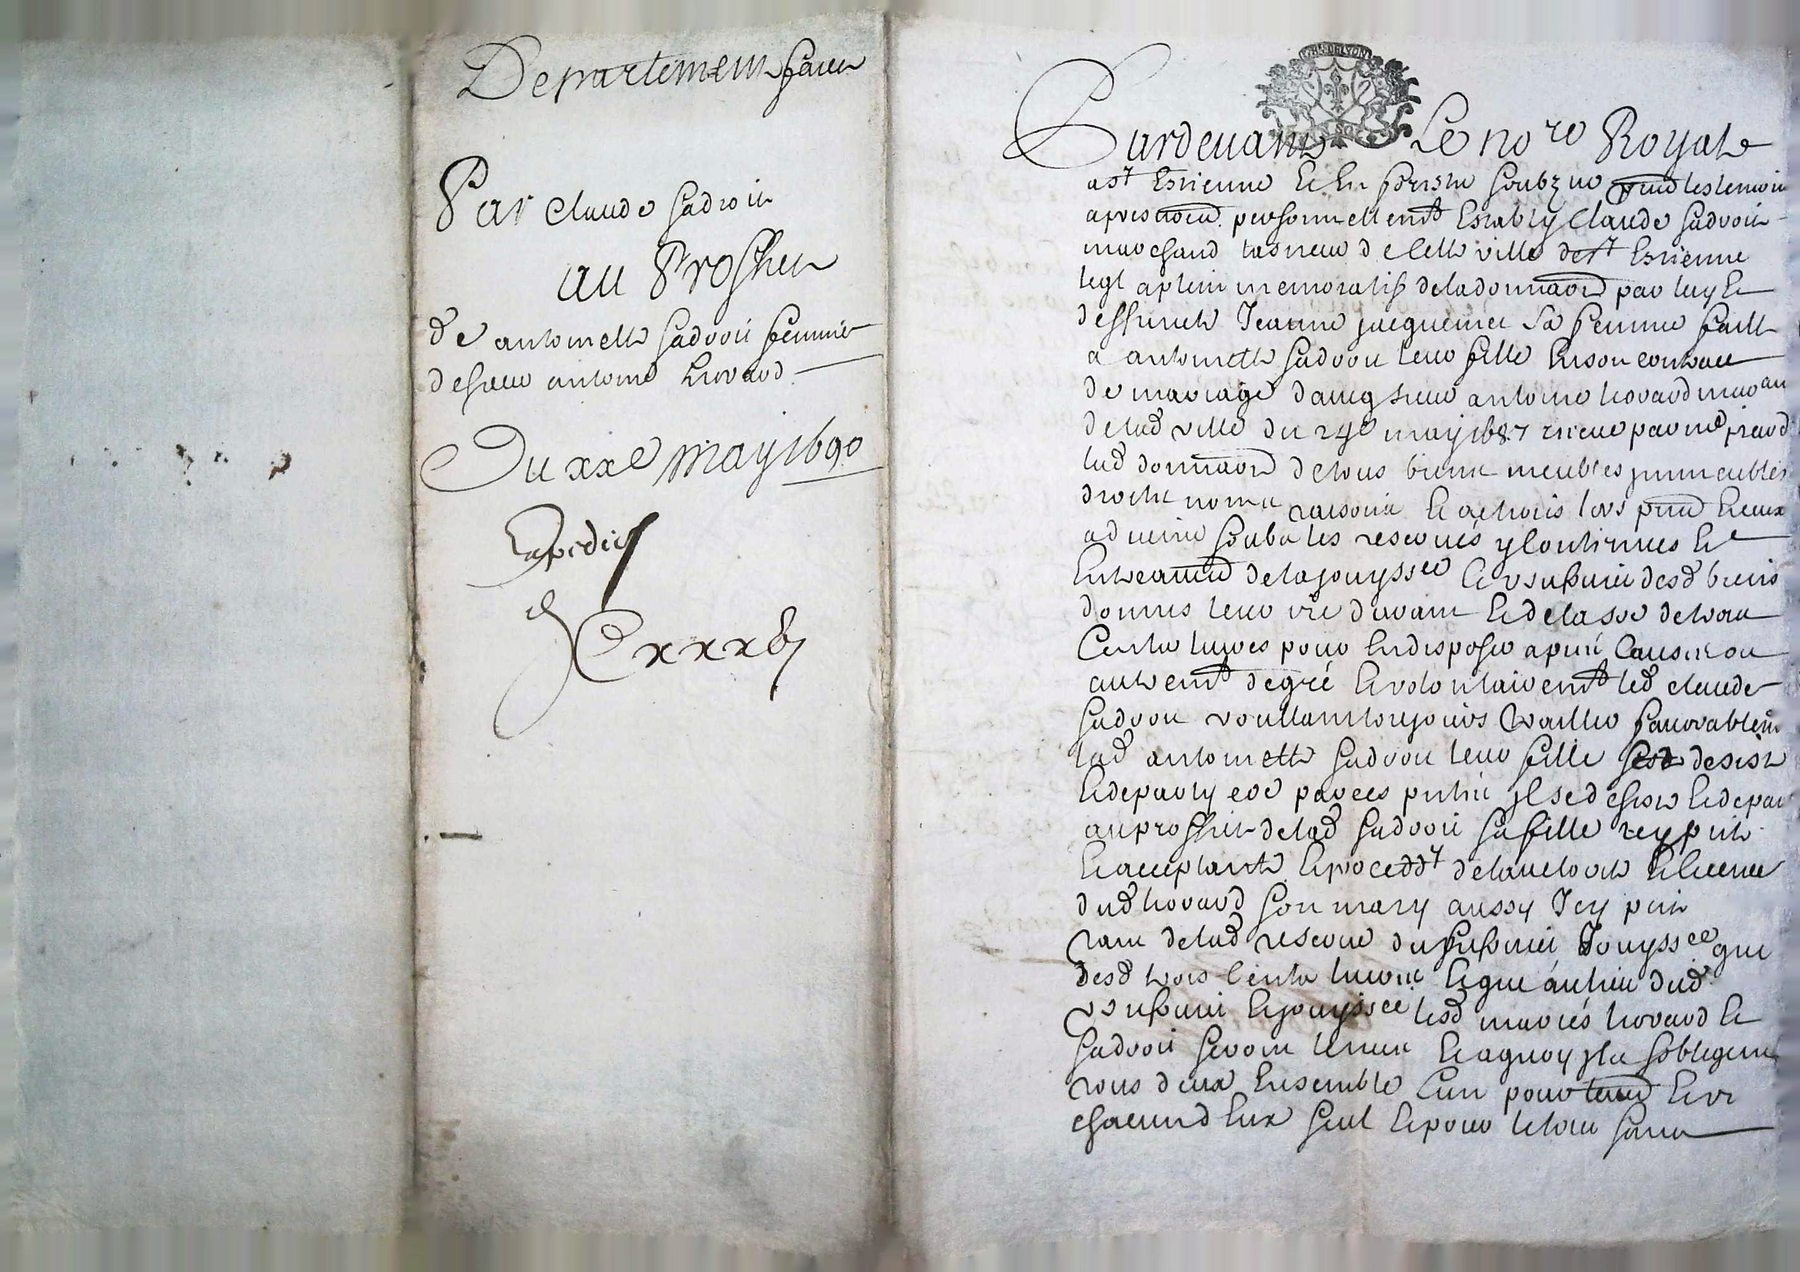 Departement faict
Par Claude Sadroit
au Proffict
de antoinette Sadroit femme
de sieur antoine hivard
Du xxe may 1690
Expedié
GEN DE LYON
Pardevant Le nore Royal
a st Estienne et En forestz soubzne pnt les tesmoins
apres nom personnellemt Estably Claude Sadroit
marchand de cette ville de st Estienne
legl a plein memoratif de la donnaon par luy et
deffuncte Jeanne jacquemet sa femme faicte
a antoinette Sadroit leur fille En son contract
de mariage d'avecq sieur antoine hivard marchant
de lad ville du 24e may 1687 receu par me
lad donnaon de tous biens meubles immeubles
droictz noms raisons et actions lors pnts et eux
advenir soubz les reserves y contenues et
de la jouyssce et usufruict desd biens
donnés leur vie durant et de la so de trois
Centz livres pour En disposer
autremt de gré et volontairemt led Claude
Sadroit voullant tousjours traitter favorablemt
lad antoinette Sadroit leur fille sest desisté
et departy et par ces pntes il se desiste et depart
au proffict de lad Sadroit sa fille icy pnte
et acceptante et procedt de lauctorité et licence
dud hivard son mary aussy Icy pnt
tant de lad reserve dusufruict Jouyssce que
desd trois Centz livres et que au lieu dud
usufruict et jouyssce lesd mariés hivard et
Sadroit seront tenus et a quoy ilz sobligent
tous deux Ensemble lun pour lautre et un
chacun d'Eux seul et pour le tout sans